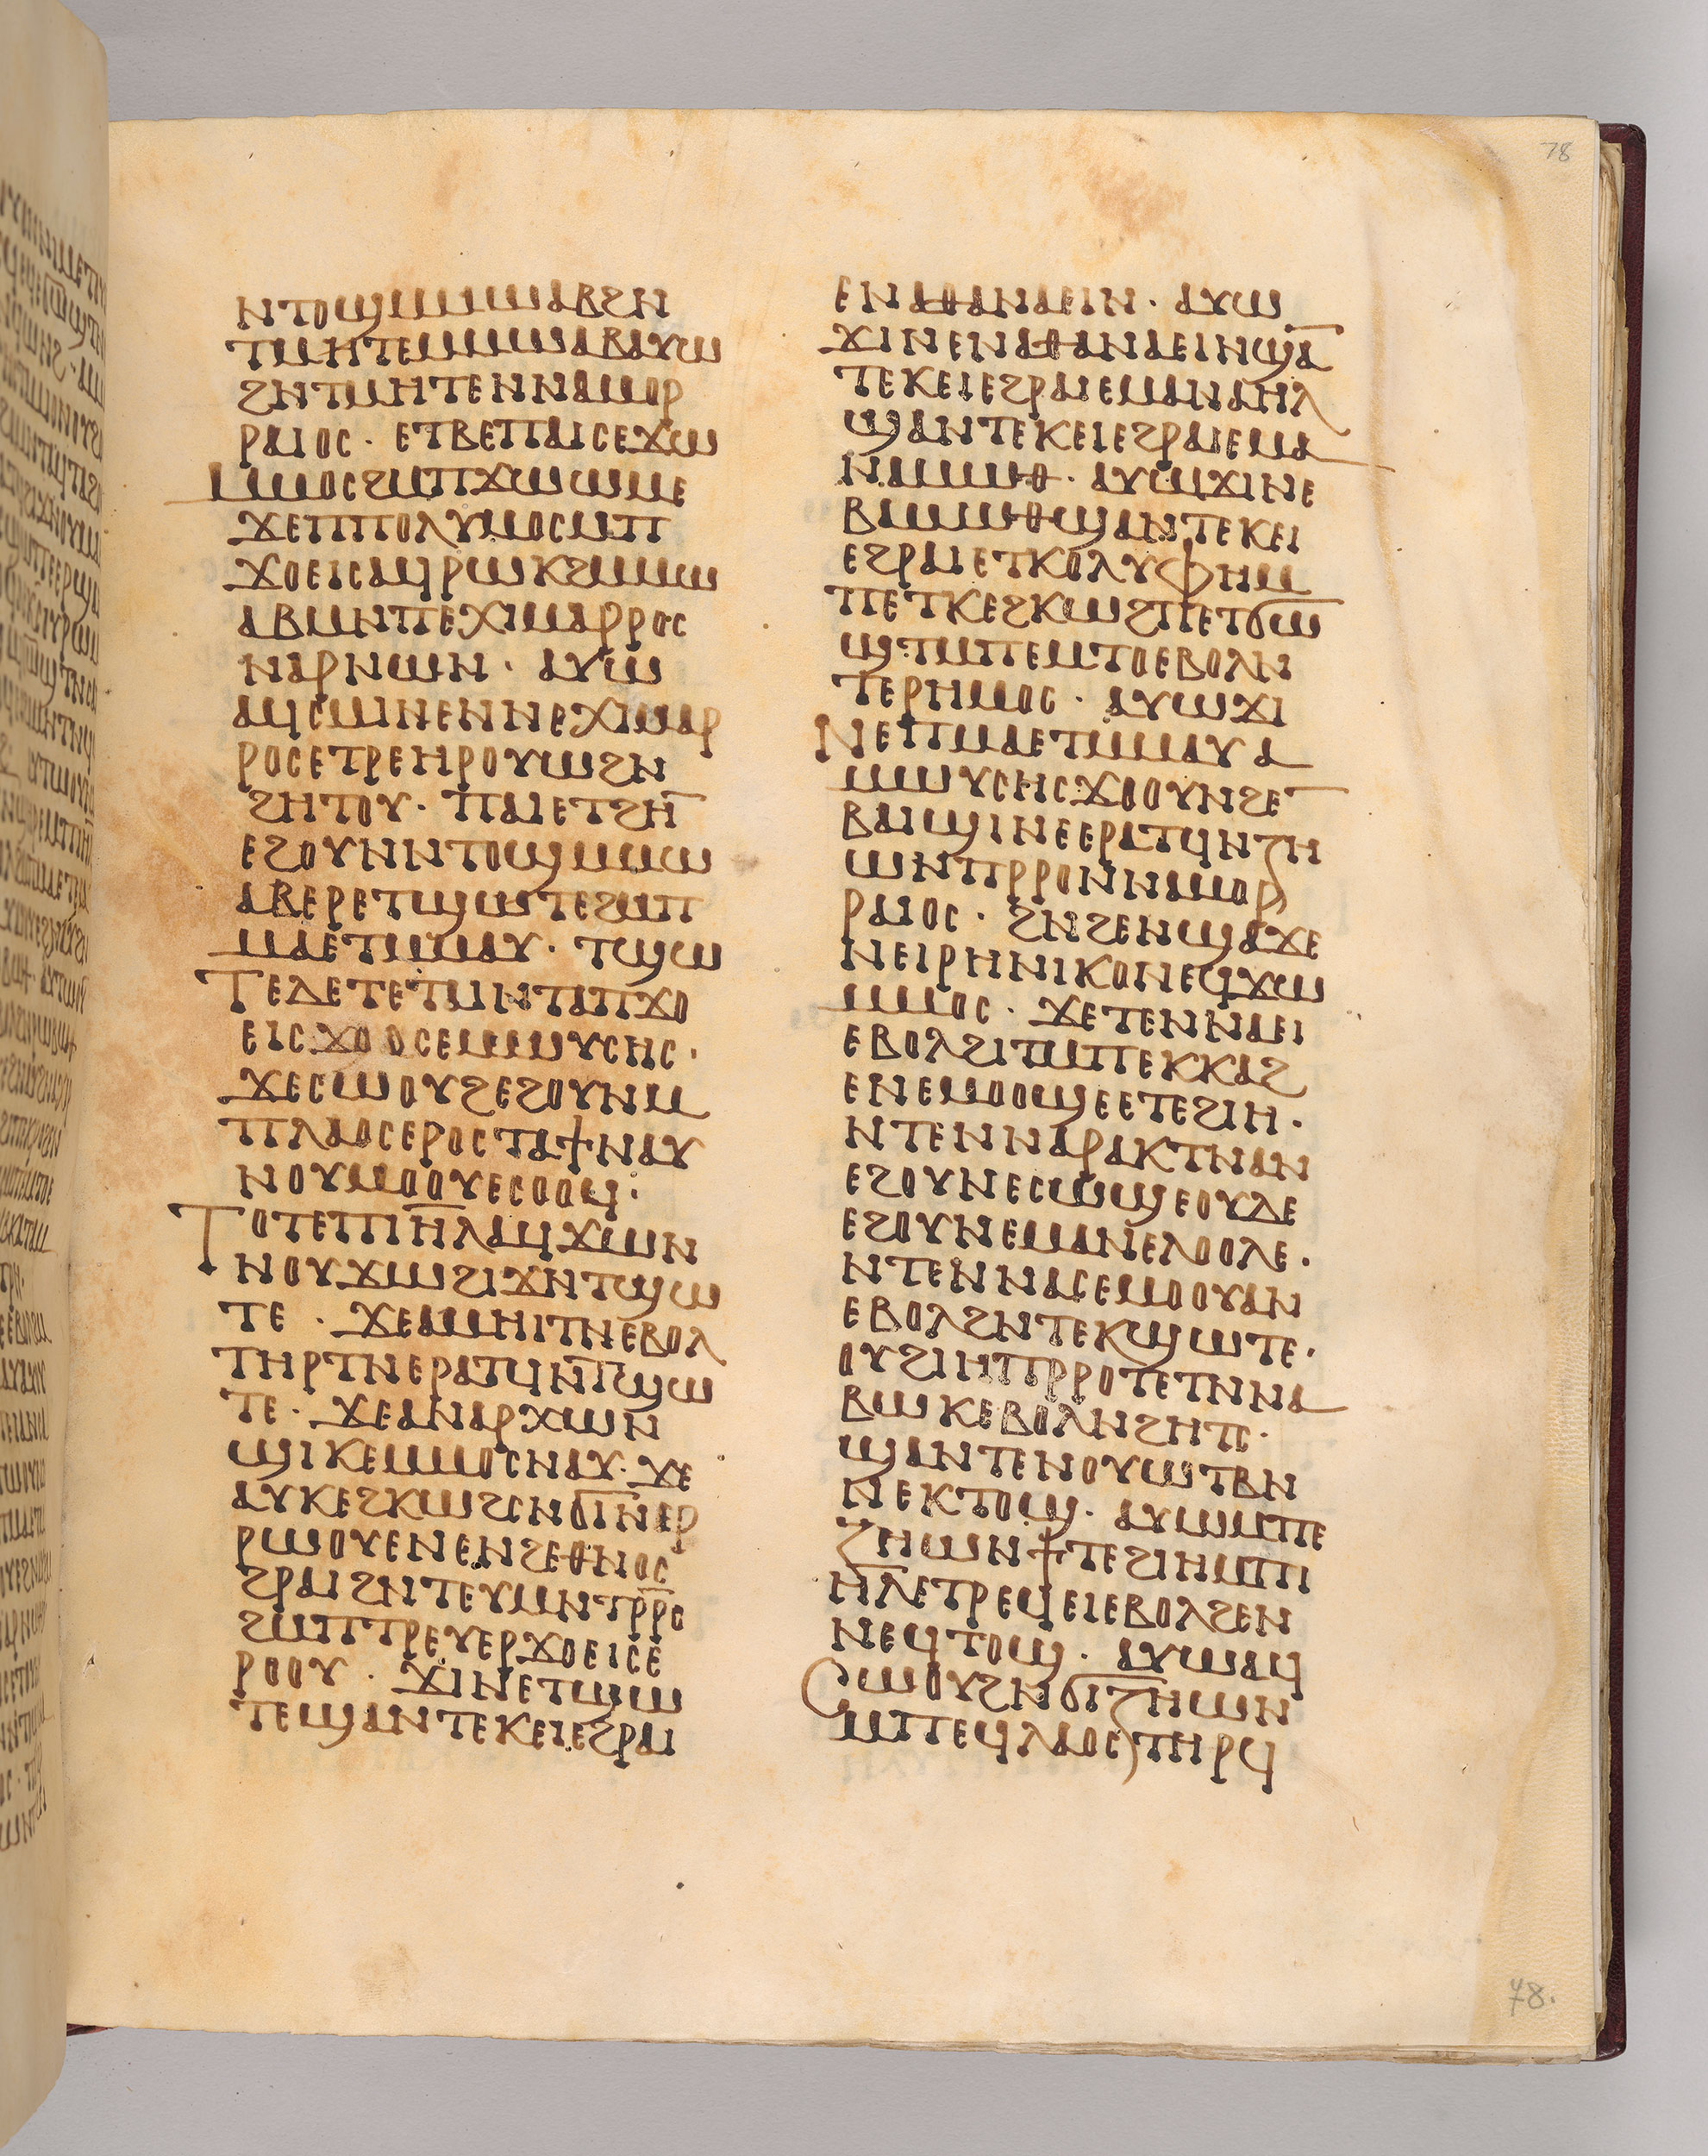 78
ⲛⲧⲟϣⲙⲙⲱⲁⲃϩⲛ
ⲧⲙⲏⲧⲉⲙⲙⲱⲁⲃⲁⲩⲱ
ϩⲛⲧⲙⲏⲧⲉⲛⲛⲁⲙⲟⲣ
ⲣⲁⲓⲟⲥ· ⲉⲧⲃⲉⲡⲁⲓⲥⲉϫⲱ
ⲙⲙⲟⲥϩⲙⲡϫⲱⲱⲙⲉ
ϫⲉⲡⲡⲟⲗⲩⲙⲟⲥⲙⲡ
ϫⲟⲉⲓⲥⲁϥⲣⲱⲕϩⲙⲙⲱ
ⲁⲃⲙⲛⲡⲉⲭⲓⲙⲁⲣⲣⲟⲥ
ⲛⲁⲣⲛⲱⲛ· ⲁⲩⲱ
ⲁϥⲥⲙⲓⲛⲉⲛⲛⲉⲭⲓⲙⲁⲣ
ⲣⲟⲥⲉⲧⲣⲉⲏⲣⲟⲩⲱϩⲛ
ϩⲏⲧⲟⲩ· ⲡⲁⲓⲉⲧϩⲏ︦
ⲉϩⲟⲩⲛⲛⲧⲟϣⲙⲙⲱ
ⲁⲃⲉⲣⲉⲧϣⲱⲧⲉϩⲙⲡ
ⲙⲁⲉⲧⲙⲙⲁⲩ· ⲧϣⲱ
ⲧⲉⲇⲉⲧⲉⲧⲁⲓⲛⲧⲁⲡϫⲟ
ⲉⲓⲥϫⲟⲟⲥⲉⲙⲙⲱⲩⲥⲏⲥ·
ϫⲉⲥⲱⲟⲩϩⲉϩⲟⲩⲛⲙ
ⲡⲗⲁⲟⲥⲉⲣⲟⲥⲧⲁϯⲛⲁⲩ
ⲛⲟⲩⲙⲟⲟⲩⲉⲥⲟⲟϥ·
ⲧⲟⲧⲉⲡⲓⲏ̅ⲗⲁϥϫⲱⲛ
ⲛⲟⲩϫⲱϩⲓϫⲛⲧϣⲱ
ⲧⲉ · ϫⲉⲁⲙⲏⲓⲧⲛⲉⲃⲟⲗ
ⲧⲏⲣⲧⲛⲉⲣⲁⲧϥⲛⲧϣⲱ
ⲧⲉ· ϫⲉⲁⲛⲁⲣⲭⲱⲛ
ϣⲓⲕⲉⲙⲙⲟⲥⲛⲁⲩ· ϫⲉ
ⲁⲩⲕⲉϩⲕⲱϩⲥⲛϭⲓⲛⲉⲣ
ⲣⲱⲟⲩⲉⲛⲉⲛϩⲉⲑⲛⲟⲥ
ϩⲣⲁⲓϩⲛⲧⲉⲩⲙⲛⲧⲣ̅ⲣⲟ
ϩⲙⲡⲧⲣⲉⲩⲉⲣϫⲟⲉⲓⲥⲉ
ⲣⲟⲟⲩ · ϫⲓⲛⲉⲧϣⲱ
ⲧⲉϣⲁⲛⲧⲉⲕⲉⲓⲉϩⲣⲁⲓ
ⲉⲛⲁⲑⲁⲛⲁⲉⲓⲛ· ⲁⲩⲱ
ϫⲓⲛⲉⲛⲁⲑⲁⲛⲁⲉⲓⲛϣⲁ︦
ⲧⲉⲕⲉⲓⲉϩⲣⲁⲓⲉⲙⲁⲛⲁⲏⲗ
ϣⲁⲛⲧⲉⲕⲉⲓⲉϩⲣⲁⲓⲉⲙⲁ
ⲛⲁⲙⲱⲑ· ⲁⲩⲱϫⲓⲛⲉ
ⲃⲁⲙⲱⲑϣⲁⲛⲧⲉⲕⲉⲓ
ⲉϩⲣⲁⲓⲉⲧⲕⲟⲗⲩⲫⲏⲙ
ⲡⲉⲧⲕⲉϩⲕⲱϩⲡⲉⲧϭⲱ
ϣⲧⲙⲡⲉⲙⲧⲟⲉⲃⲟⲗⲛ
ⲧⲉⲣⲏⲙⲟⲥ· ⲁⲩⲱϫⲓ
ⲛⲉⲡⲙⲁⲉⲧⲙⲙⲁⲩⲁ
ⲙⲱⲩⲥⲏⲥϫⲟⲟⲩⲛϩⲉ︦
ⲃⲁⲓϣⲓⲛⲉⲉⲣⲁⲧϥⲛⲥⲏ
ⲱⲛⲡⲣⲣⲟⲛⲛⲁⲙⲟⲣ
ⲣⲁⲓⲟⲥ· ϩⲛϩⲉⲛϣⲁϫⲉ
ⲛⲉⲓⲣⲏⲛⲓⲕⲟⲛⲉϥϫⲱ
ⲙⲙⲟⲥ· ϫⲉⲧⲉⲛⲛⲁⲉⲓ
ⲉⲃⲟⲗϩⲓⲧⲙⲡⲉⲕⲕⲁϩ
ⲉⲛⲉⲙⲟⲟϣⲉⲉⲧⲉϩⲓⲏ·
ⲛⲧⲉⲛⲛⲁⲣⲁⲕⲧⲛⲁⲛ
ⲉϩⲟⲩⲛⲉⲥⲱϣⲉⲟⲩⲇⲉ
ⲉϩⲟⲩⲛⲉⲙⲁⲛⲉⲗⲟⲟⲗⲉ·
ⲛⲧⲉⲛⲛⲁⲥⲉⲙⲟⲟⲩⲁⲛ
ⲉⲃⲟⲗϩⲛⲧⲉⲕϣⲱⲧⲉ·
ⲟⲩϩⲓⲏⲡⲣⲣⲟⲧⲉⲧⲛⲛⲁ
ⲃⲱⲕⲉⲃⲟⲗⲛϩⲏⲧⲥ·
ϣⲁⲛⲧⲉⲛⲟⲩⲱⲧⲃⲛ
ⲛⲉⲕⲧⲟϣ· ⲁⲩⲱⲙⲡⲉ
ⲥⲏⲱⲛϯⲧⲉϩⲓⲏⲙⲡⲓ
ⲏ̅ⲗⲉⲧⲣⲉϥⲉⲓⲉⲃⲟⲗϩⲉⲛ
ⲛⲉϥⲧⲟϣ· ⲁⲩⲱⲁϥ
ⲥⲱⲟⲩϩⲛϭⲓⲥⲏⲱⲛ
ⲙⲡⲉϥⲗⲁⲟⲥⲧⲏⲣϥ
78.